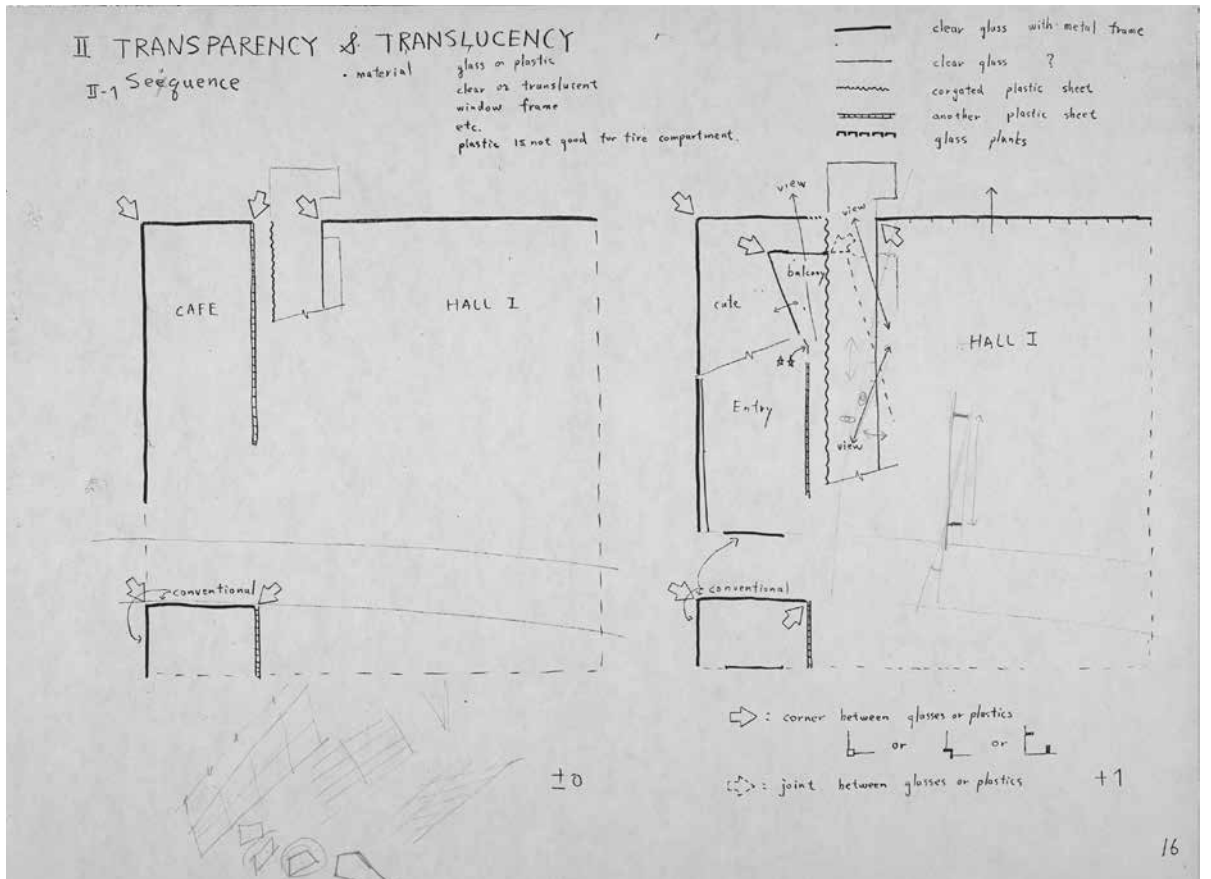 II TRANSPARENCY & TRANSLUCENCY
II-1 Seéquence
• material glass or plastic
clear or translucent
window frame
etc.
plastic is not good for fire compartment.
clear glass with metal frame
clear glass ?
corgated plastic sheet
another plastic sheet
glass planks
CAFE
HALL I
conventional
±0
view
view
balcony
cafe
☆☆
HALL I
Entry
view
conventional
: corner between glasses or plastics
or or
: joint between glasses or plastics
+1
16